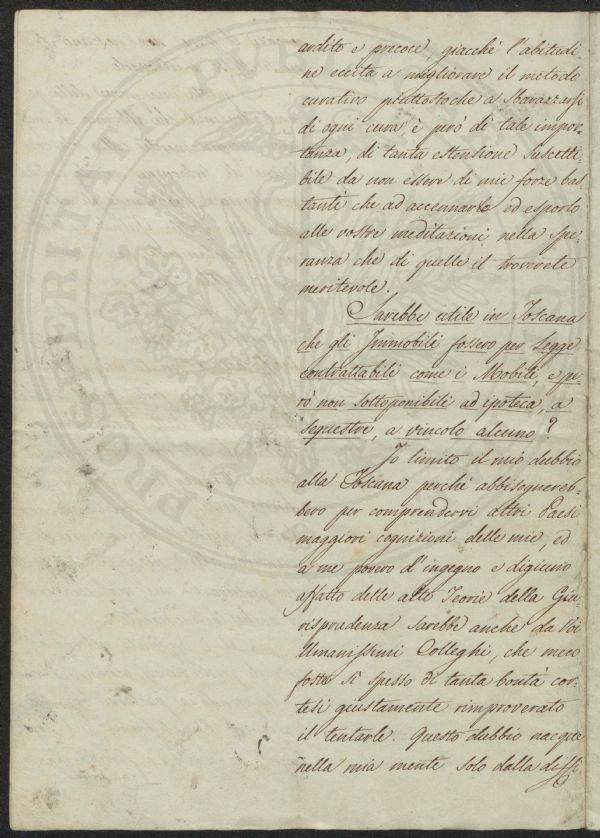 ardito e precoce, giacchè l'abitudi-
ne eccita a migliorare il metodo
curativo piuttosto che a sbarazzarsi
di ogni cura, è però di tale impor-
tanza, di tanta estensione suscetti-
bile da non essere di mie forze bas
tanti che ad accennarlo ed esporlo
alle vostre meditazioni nella spe-
ranza che di quelle il troverete
meritevole.
Sarebbe utile in Toscana
che gli Immobili fossero per Legge
contrattabili come i Mobili, e pe-
rò non sottoponibili ad ipoteca, a
sequestro, a vincolo alcuno?
Io limito il mio dubbio
alla Toscana perchè abbisognereb-
bero per comprendervi altri Paesi
maggiori cognizioni delle mie, ed
a me povero d'ingegno e digiuno
affatto delle alte Teorie della Giu-
risprudenza sarebbe anche da Voi
Umanissimi Colleghi, che meco
foste sì spesso di tanta bontà cor-
tesi giustamente rimproverato
il tentarle. Questo dubbio nacque
nella mia mente solo dalla diffi
PROSPERITATI PUB